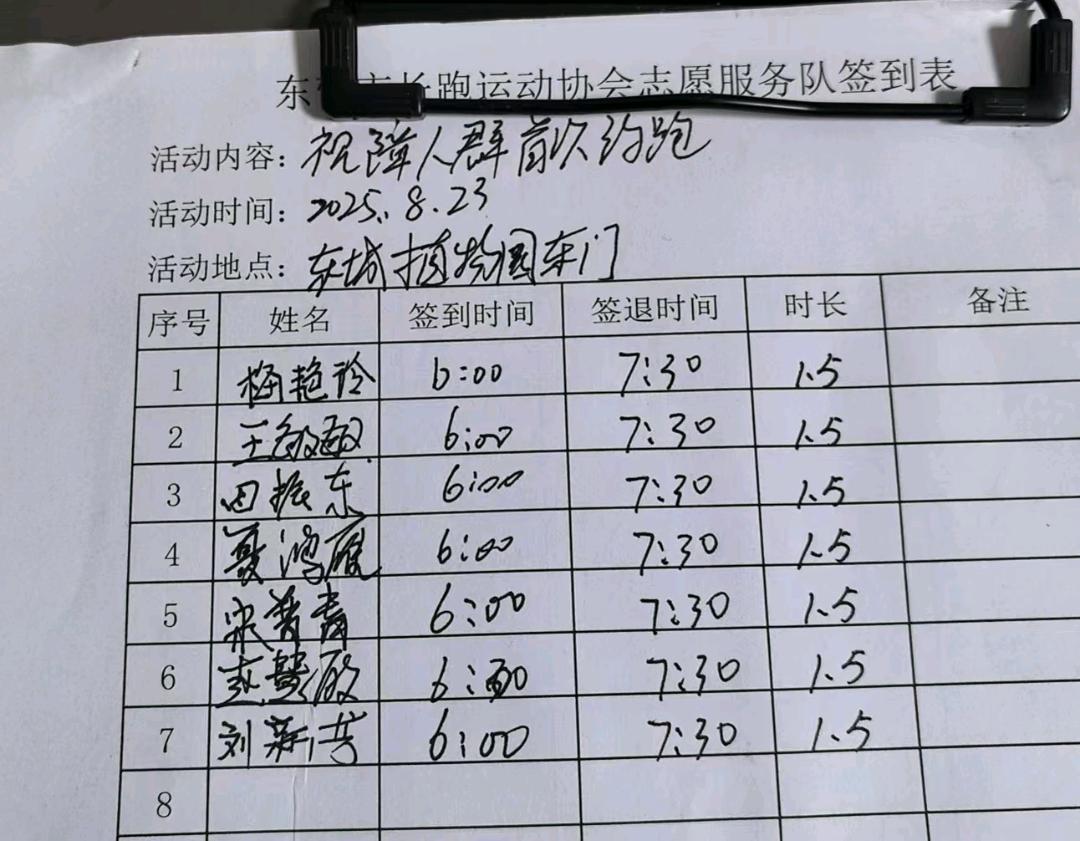 东 市长跑运动协会志愿服务队签到表
活动内容：视障人群首次约跑
活动时间：2025.8.23
活动地点：东城植物园东门
序号 姓名 签到时间 签退时间 时长 备注
1 梅艳玲 6:00 7:30 1.5
2 王敏敏 6:00 7:30 1.5
3 田振东 6:00 7:30 1.5
4 聂鸿雁 6:00 7:30 1.5
5 宋普青 6:00 7:30 1.5
6 6:00 7:30 1.5
7 刘新芳 6:00 7:30 1.5
8